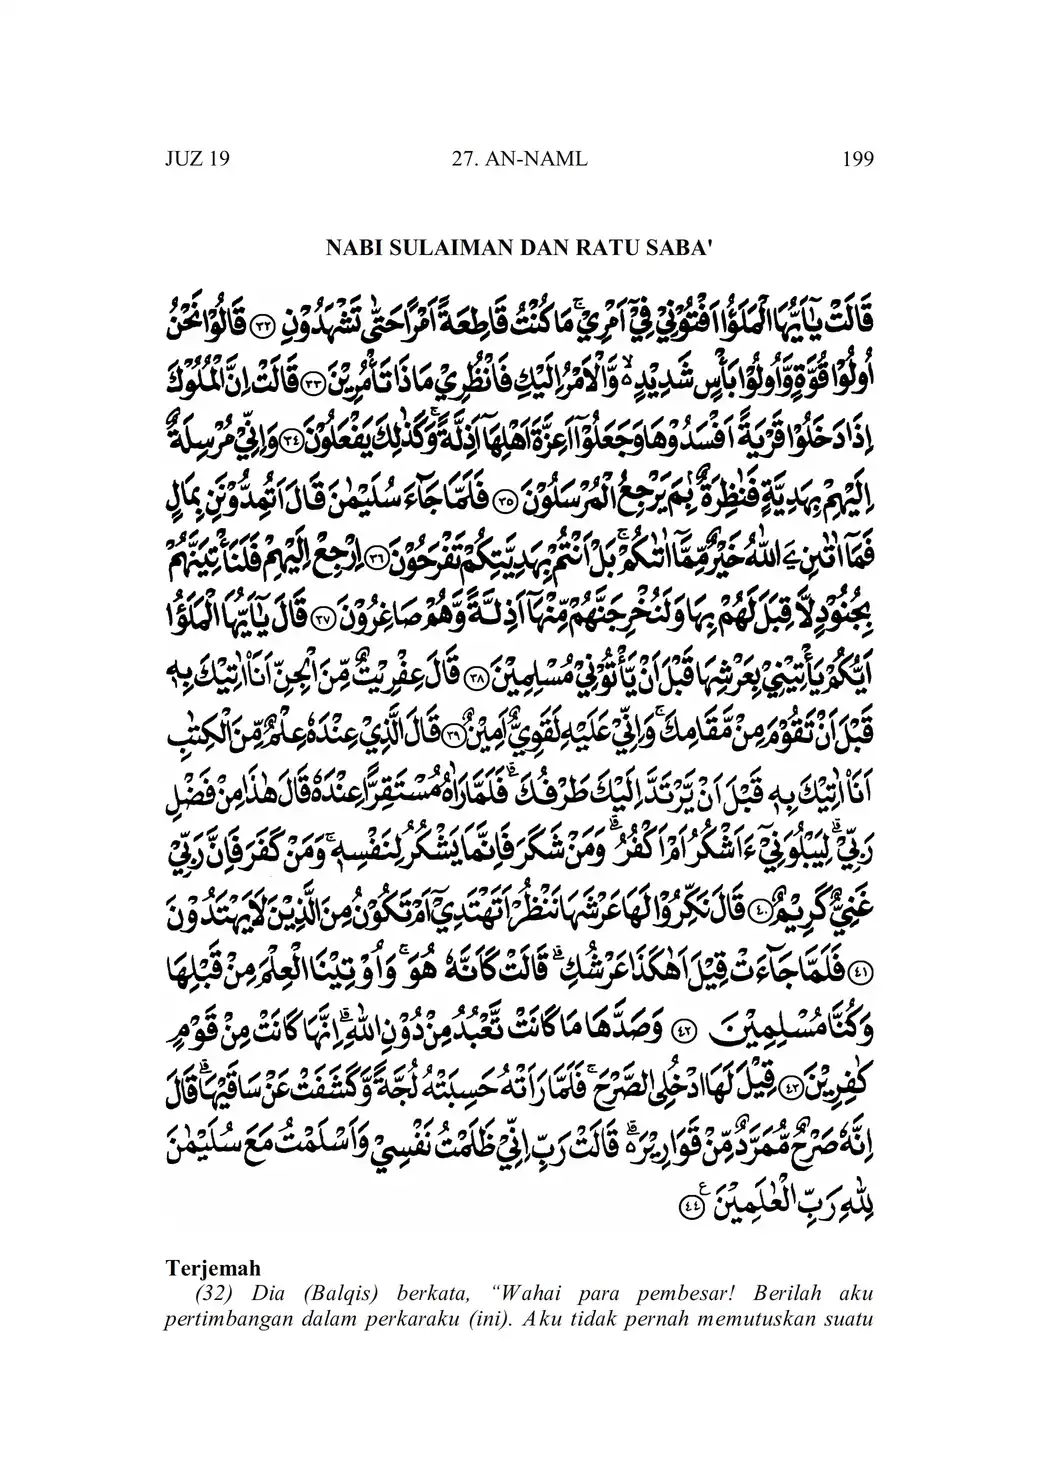 JUZ 19 27. AN-NAML 199
NABI SULAIMAN DAN RATU SABA'
قَالَتْ يٰٓاَيُّهَا الْمَلَؤُا اَفْتُوْنِيْ فِيْٓ اَمْرِيْۚ مَا كُنْتُ قَاطِعَةً اَمْرًا حَتّٰى تَشْهَدُوْنِ ﴿٣٢﴾ قَالُوْا نَحْنُ
اُولُوْا قُوَّةٍ وَّاُولُوْا بَأْسٍ شَدِيْدٍ ەۙ وَّالْاَمْرُ اِلَيْكِ فَانْظُرِيْ مَاذَا تَأْمُرِيْنَ ﴿٣٣﴾ قَالَتْ اِنَّ الْمُلُوْكَ
اِذَا دَخَلُوْا قَرْيَةً اَفْسَدُوْهَا وَجَعَلُوْٓا اَعِزَّةَ اَهْلِهَآ اَذِلَّةًۚ وَكَذٰلِكَ يَفْعَلُوْنَ ﴿٣٤﴾ وَاِنِّيْ مُرْسِلَةٌ
اِلَيْهِمْ بِهَدِيَّةٍ فَنٰظِرَةٌ ۢبِمَ يَرْجِعُ الْمُرْسَلُوْنَ ﴿٣٥﴾ فَلَمَّا جَاۤءَ سُلَيْمٰنَ قَالَ اَتُمِدُّوْنَنِ بِمَالٍ
فَمَآ اٰتٰىنِۦ َ اللّٰهُ خَيْرٌ مِّمَّآ اٰتٰىكُمْۚ بَلْ اَنْتُمْ بِهَدِيَّتِكُمْ تَفْرَحُوْنَ ﴿٣٦﴾ اِرْجِعْ اِلَيْهِمْ فَلَنَأْتِيَنَّهُمْ
بِجُنُوْدٍ لَّا قِبَلَ لَهُمْ بِهَا وَلَنُخْرِجَنَّهُمْ مِّنْهَآ اَذِلَّةً وَّهُمْ صَاغِرُوْنَ ﴿٣٧﴾ قَالَ يٰٓاَيُّهَا الْمَلَؤُا
اَيُّكُمْ يَأْتِيْنِيْ بِعَرْشِهَا قَبْلَ اَنْ يَّأْتُوْنِيْ مُسْلِمِيْنَ ﴿٣٨﴾ قَالَ عِفْرِيْتٌ مِّنَ الْجِنِّ اَنَا۠ اٰتِيْكَ بِهٖ
قَبْلَ اَنْ تَقُوْمَ مِنْ مَّقَامِكَۚ وَاِنِّيْ عَلَيْهِ لَقَوِيٌّ اَمِيْنٌ ﴿٣٩﴾ قَالَ الَّذِيْ عِنْدَهٗ عِلْمٌ مِّنَ الْكِتٰبِ
اَنَا۠ اٰتِيْكَ بِهٖ قَبْلَ اَنْ يَّرْتَدَّ اِلَيْكَ طَرْفُكَۗ فَلَمَّا رَاٰهُ مُسْتَقِرًّا عِنْدَهٗ قَالَ هٰذَا مِنْ فَضْلِ
رَبِّيْۗ لِيَبْلُوَنِيْٓ ءَاَشْكُرُ اَمْ اَكْفُرُۗ وَمَنْ شَكَرَ فَاِنَّمَا يَشْكُرُ لِنَفْسِهٖۚ وَمَنْ كَفَرَ فَاِنَّ رَبِّيْ
غَنِيٌّ كَرِيْمٌ ﴿٤٠﴾ قَالَ نَكِّرُوْا لَهَا عَرْشَهَا نَنْظُرْ اَتَهْتَدِيْٓ اَمْ تَكُوْنُ مِنَ الَّذِيْنَ لَا يَهْتَدُوْنَ
﴿٤١﴾ فَلَمَّا جَاۤءَتْ قِيْلَ اَهٰكَذَا عَرْشُكِۗ قَالَتْ كَاَنَّهٗ هُوَۚ وَاُوْتِيْنَا الْعِلْمَ مِنْ قَبْلِهَا
وَكُنَّا مُسْلِمِيْنَ ﴿٤٢﴾ وَصَدَّهَا مَا كَانَتْ تَّعْبُدُ مِنْ دُوْنِ اللّٰهِۗ اِنَّهَا كَانَتْ مِنْ قَوْمٍ
كٰفِرِيْنَ ﴿٤٣﴾ قِيْلَ لَهَا ادْخُلِى الصَّرْحَۚ فَلَمَّا رَاَتْهُ حَسِبَتْهُ لُجَّةً وَّكَشَفَتْ عَنْ سَاقَيْهَاۗ قَالَ
اِنَّهٗ صَرْحٌ مُّمَرَّدٌ مِّنْ قَوَارِيْرَ ەۗ قَالَتْ رَبِّ اِنِّيْ ظَلَمْتُ نَفْسِيْ وَاَسْلَمْتُ مَعَ سُلَيْمٰنَ
لِلّٰهِ رَبِّ الْعٰلَمِيْنَ ࣖ ﴿٤٤﴾
Terjemah
(32) Dia (Balqis) berkata, “Wahai para pembesar! Berilah aku
pertimbangan dalam perkaraku (ini). Aku tidak pernah memutuskan suatu